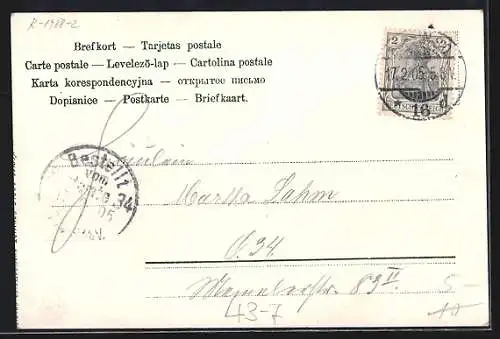 R-1988-2
Brefkort — Tarjetas postale
Carte postale — Levelező-lap — Cartolina postale
Karta korespondencyjna — открытое письмо
Dopisnice — Postkarte — Briefkaart.
2
17.2.05. 5-6N.
18
Bestellt
vom
34
05
Fräulein
Martha Lahm
O. 34
Memelerstr. 83 II
43-7
5-